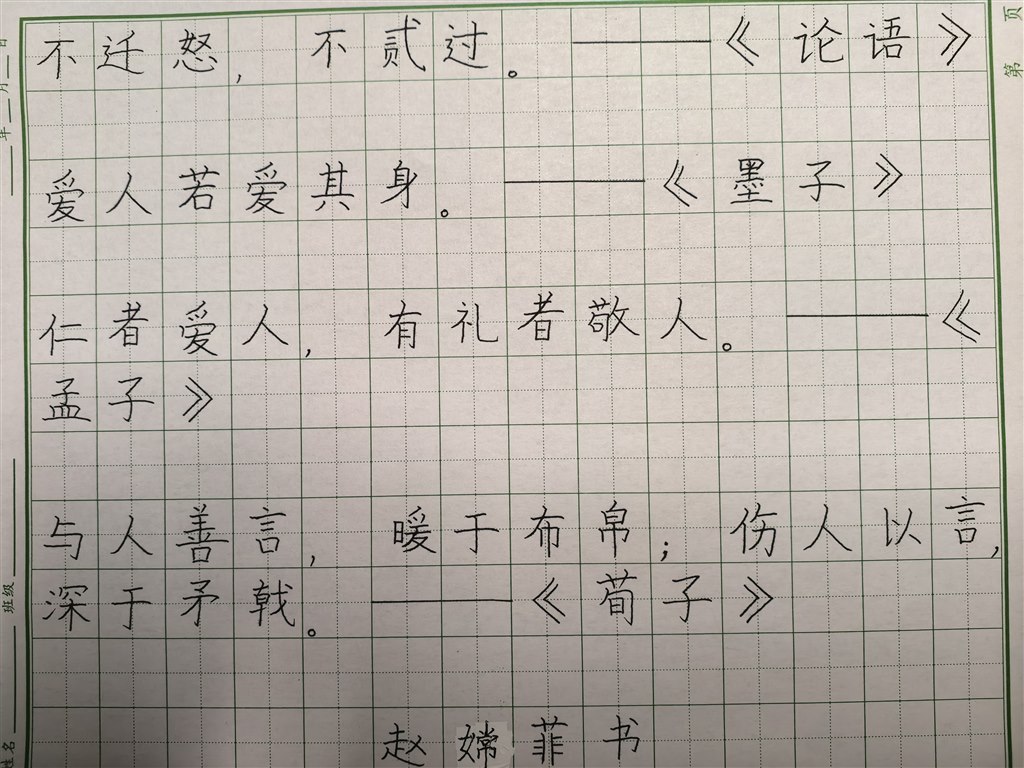 不迁怒，不贰过。——《论语》
爱人若爱其身。——《墨子》
仁者爱人，有礼者敬人。——《
孟子》
与人善言，暖于布帛；伤人以言，
深于矛戟。——《荀子》
赵嫦菲书
第 页
年 月 日
班级
姓名